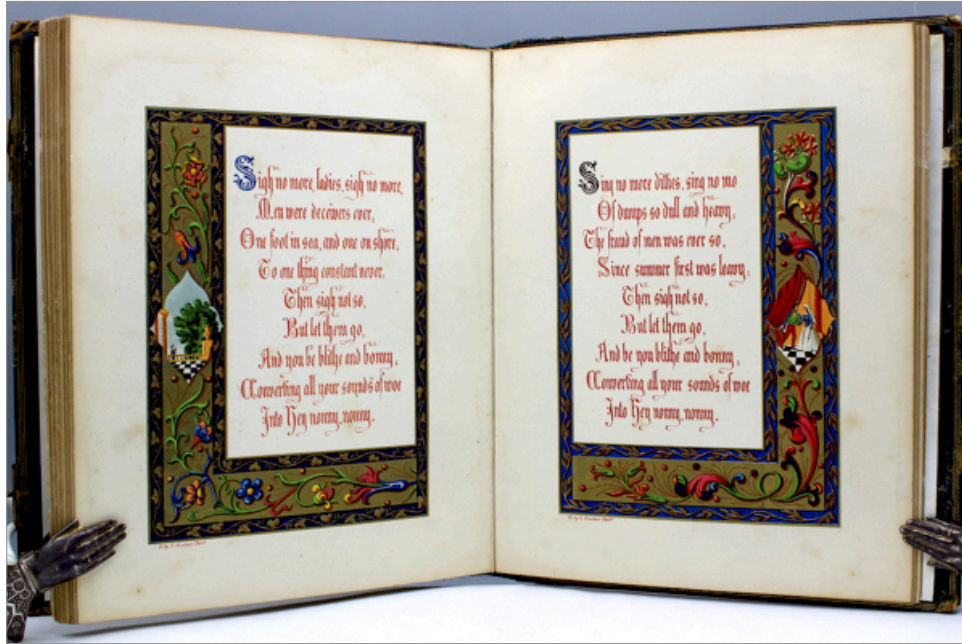 Sigh no more, ladies, sigh no more,
Men were deceivers ever,
One foot in sea, and one on shore,
To one thing constant never.
Then sigh not so,
But let them go,
And you be blithe and bonny,
Converting all your sounds of woe
Into Hey nonny, nonny.
Sing no more ditties, sing no mo
Of dumps so dull and heavy,
The fraud of men was ever so,
Since summer first was leavy:
Then sigh not so,
But let them go,
And be you blithe and bonny,
Converting all your sounds of woe
Into Hey nonny, nonny.